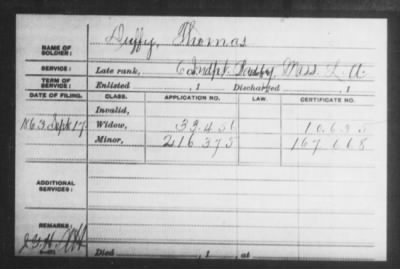 NAME OF SOLDIER: Duffy, Thomas
SERVICE: Late rank, Mass. L. A.
TERM OF SERVICE: Enlisted , 1 Discharged , 1
DATE OF FILING. CLASS. APPLICATION NO. LAW. CERTIFICATE NO.
Invalid,
1863 Sept 17. Widow, 33.451
Minor, 216.375 167.668
ADDITIONAL SERVICES:
REMARKS:
Died , 1 , at